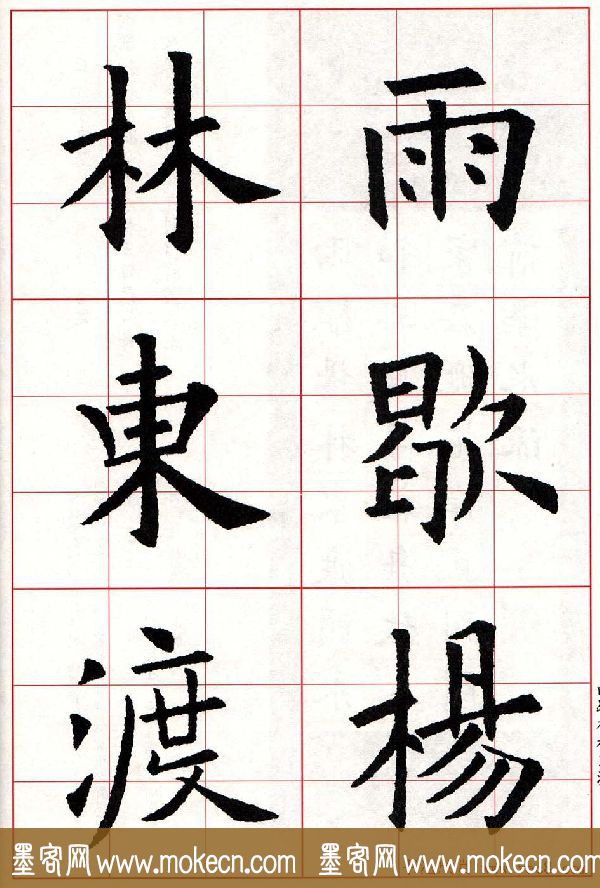 雨歇楊
林東渡
墨客网 www.mokecn.com 墨客网 www.mokecn.com